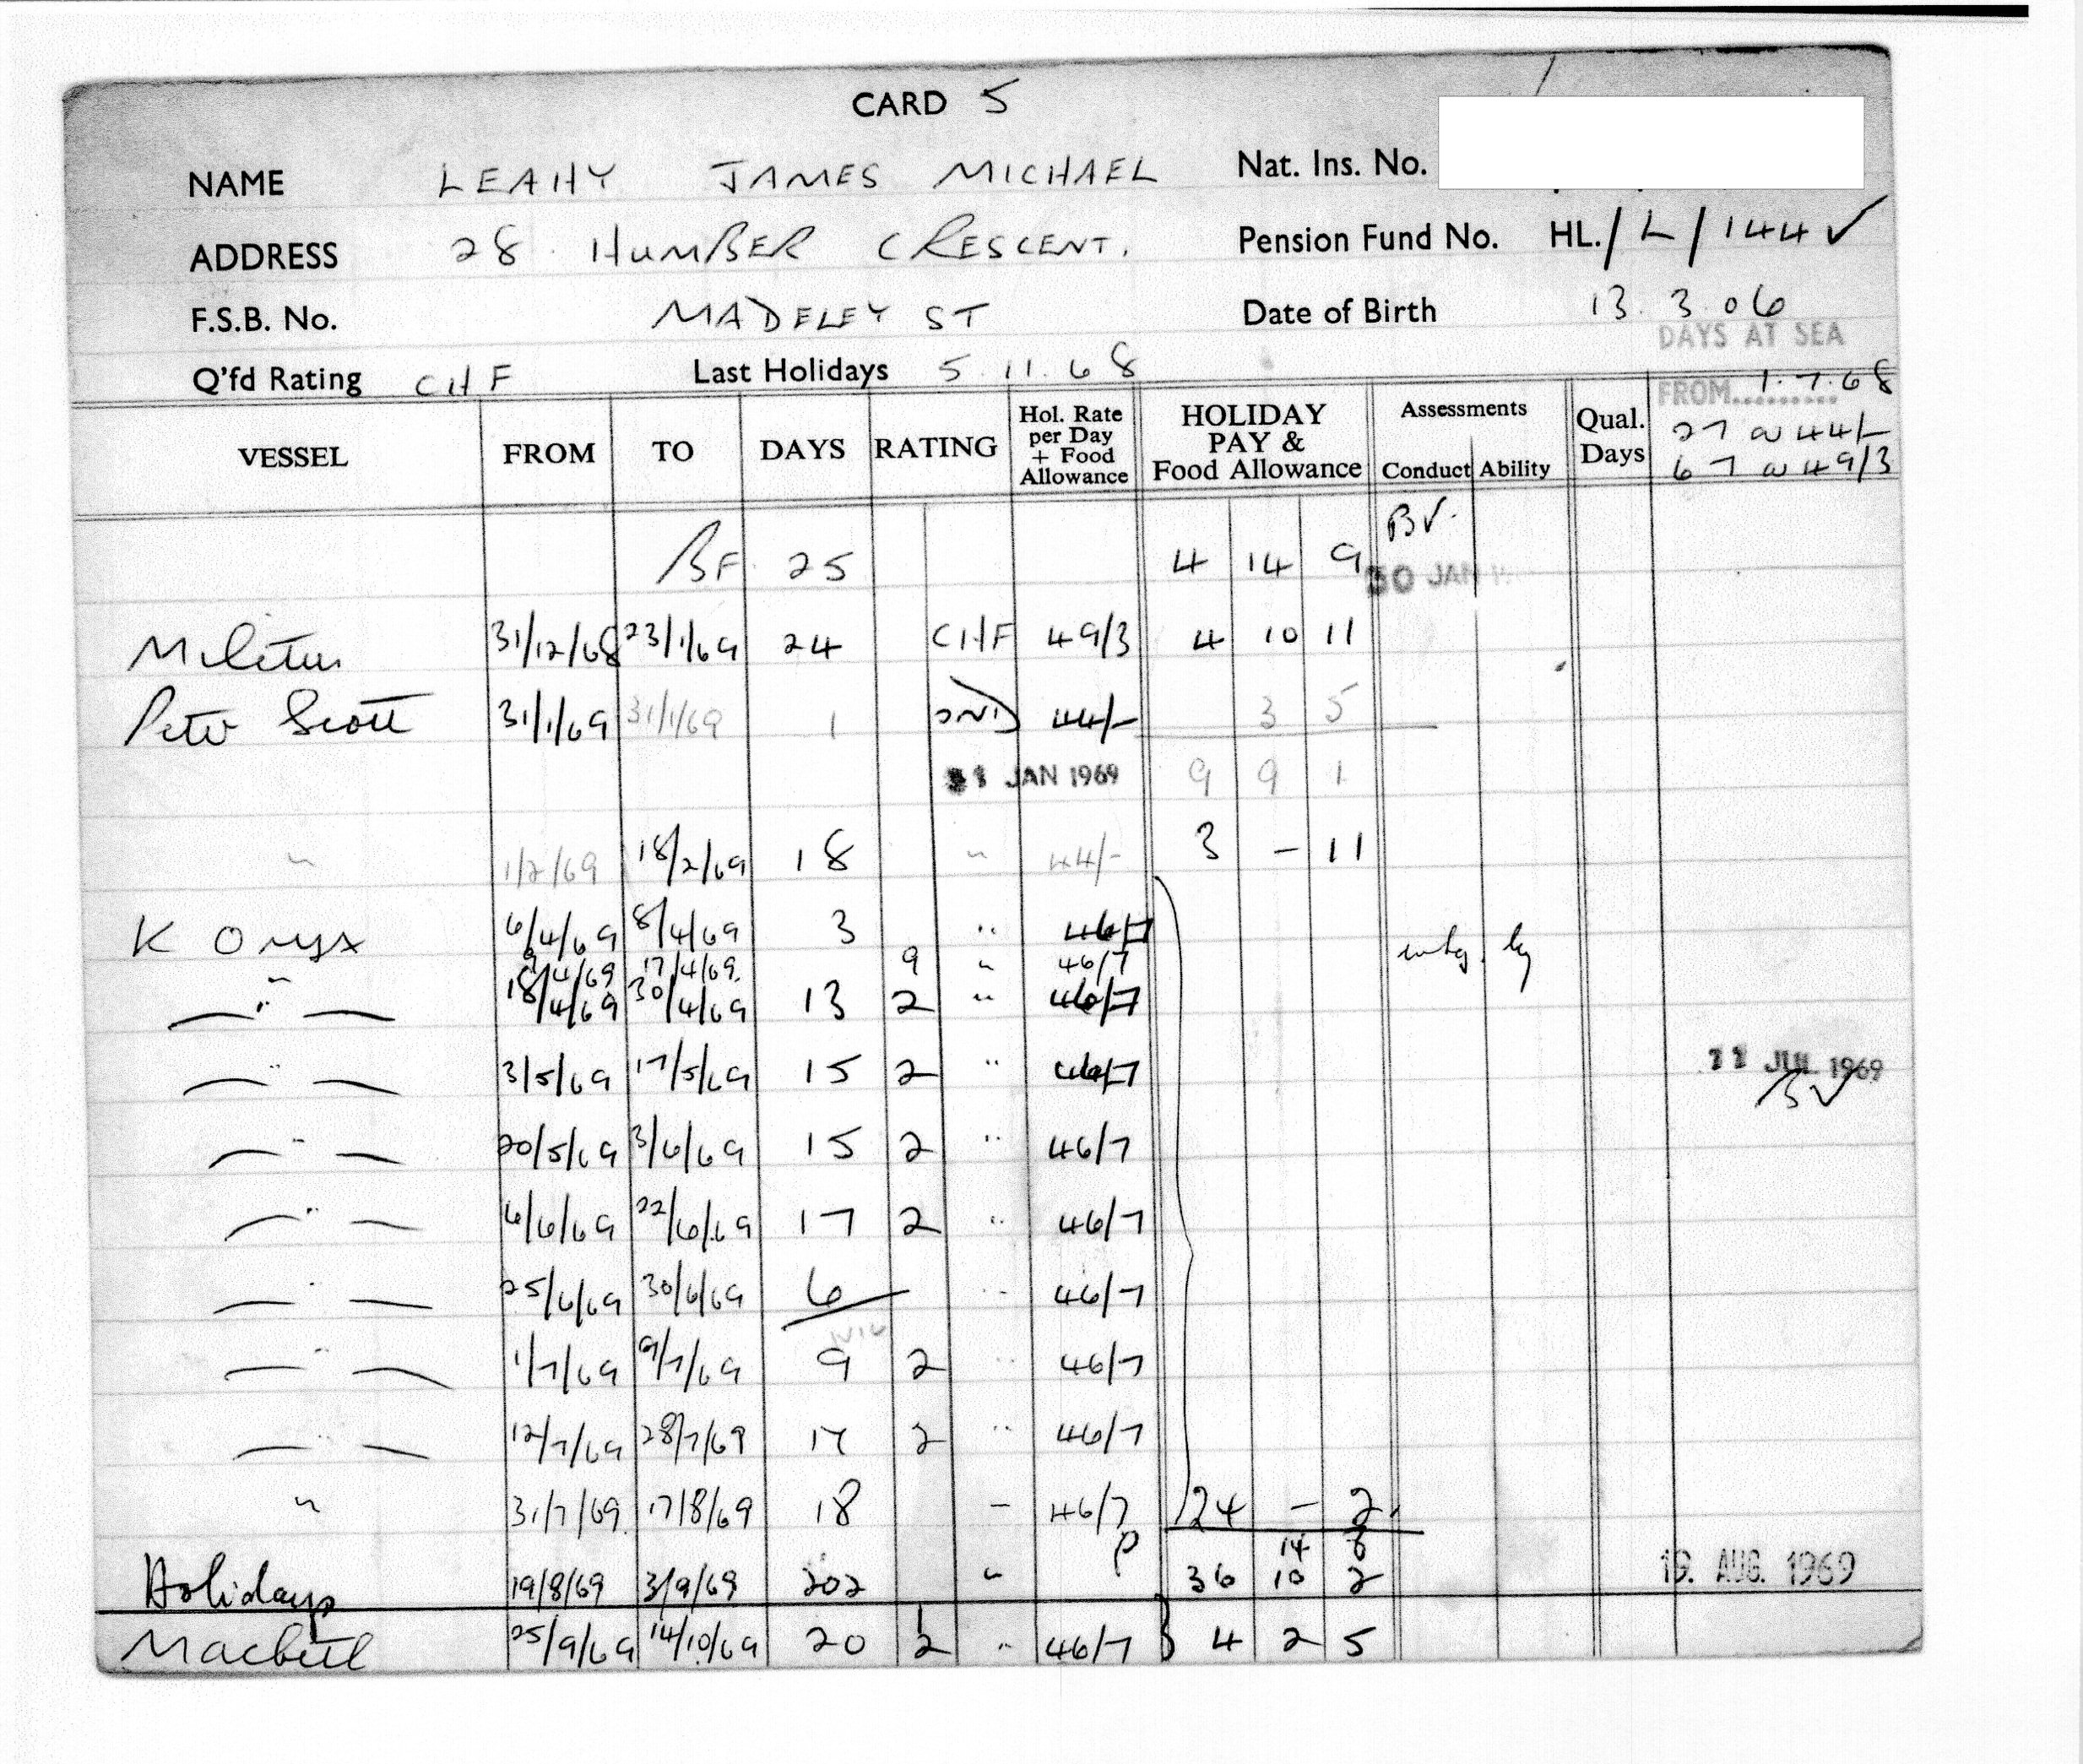 CARD 5
NAME LEAHY JAMES MICHAEL Nat. Ins. No.
ADDRESS 28 HUMBER CRESCENT. Pension Fund No. HL./L/144 ✓
F.S.B. No. MADELEY ST Date of Birth 13.3.06
DAYS AT SEA
Q'fd Rating CHF Last Holidays 5.11.68 FROM 1.7.68
27 @ 44/-
67 @ 49/3
VESSEL FROM TO DAYS RATING Hol. Rate per Day + Food Allowance HOLIDAY PAY & Food Allowance Assessments Conduct Ability Qual. Days
BF 25 4 14 9 BV.
30 JAN
Miletus 31/12/68 23/1/69 24 CHF 49/3 4 10 11
Peter Scott 31/1/69 31/1/69 1 2ND 44/- 3 5
31 JAN 1969 9 9 1
" 1/2/69 18/2/69 18 " 44/- 3 - 11
K Onyx 6/4/69 8/4/69 3 " 46/7
" 9/4/69 17/4/69. 9 " 46/7
— " — 18/4/69 30/4/69 13 2 " 46/7
— " — 3/5/69 17/5/69 15 2 " 46/7 11 JUL 1969
BV
— " — 20/5/69 3/6/69 15 2 " 46/7
— " — 6/6/69 22/6/69 17 2 " 46/7
— " — 25/6/69 30/6/69 6 " 46/7
— " — 1/7/69 9/7/69 9 2 " 46/7
— " — 12/7/69 28/7/69 17 2 " 46/7
" 31/7/69 17/8/69 18 - 46/7 24 - 2
P 14 8
Holidays 19/8/69 3/9/69 202 " 36 10 2 19. AUG. 1969
Macbeth 25/9/69 14/10/69 20 2 " 46/7 4 2 5